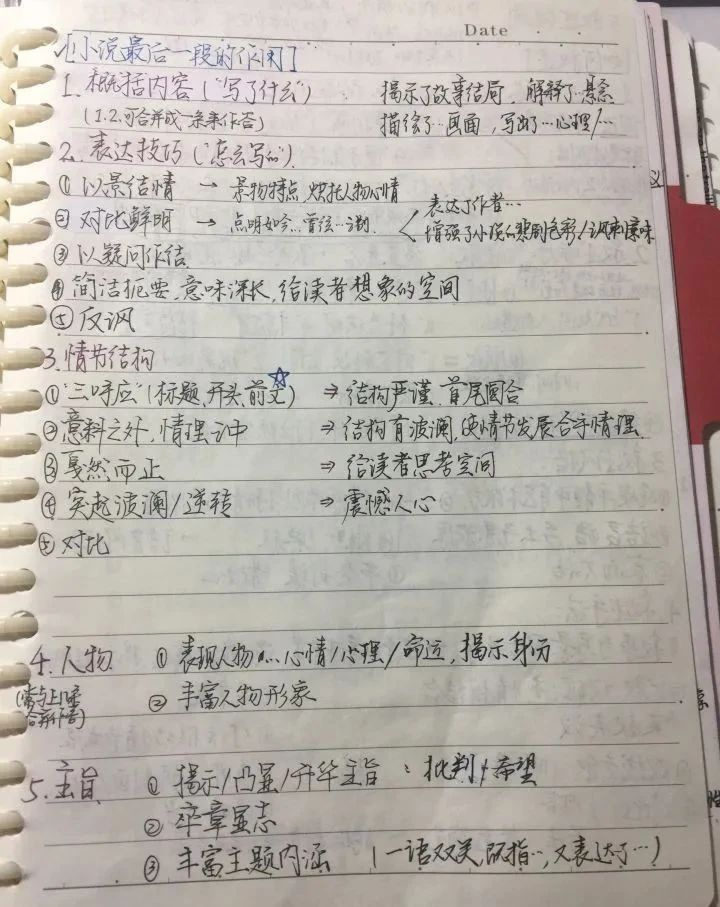 Date
[小说最后一段的作用]
1. 概括内容("写了什么") 揭示了故事结局,解释了…悬念
(1.2.可合并成一条来作答) 描绘了…画面,写出了…心理/…
2. 表达技巧("怎么写的")
① 以景结情 → 景物特点,烘托人物心情
② 对比鲜明 → 点明如今…曾经… 表达了作者…
增强了小说的悲剧色彩/讽刺意味
③ 以疑问作结
④ 简洁扼要,意味深长,给读者想象的空间
⑤ 反讽
3. 情节结构
① "三呼应"(标题、开头、前文)☆ ⇒ 结构严谨,首尾圆合
② 意料之外,情理之中 ⇒ 结构有波澜,使情节发展合乎情理
③ 戛然而止 ⇒ 给读者思考空间
④ 突起波澜/逆转 ⇒ 震憾人心
⑤ 对比
4. 人物 ① 表现人物…心情/心理/命运,揭示身份
合并作答) ② 丰富人物形象
5. 主旨 ① 揭示/凸显/升华主旨:批判/希望
② 卒章显志
③ 丰富主题内涵 (一语双关,既指…,又表达了…)